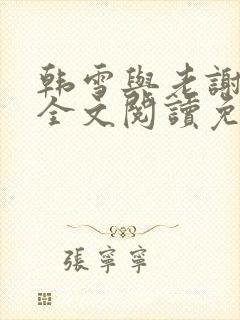 韩雪與老謝
全文閱讀免
張寧寧